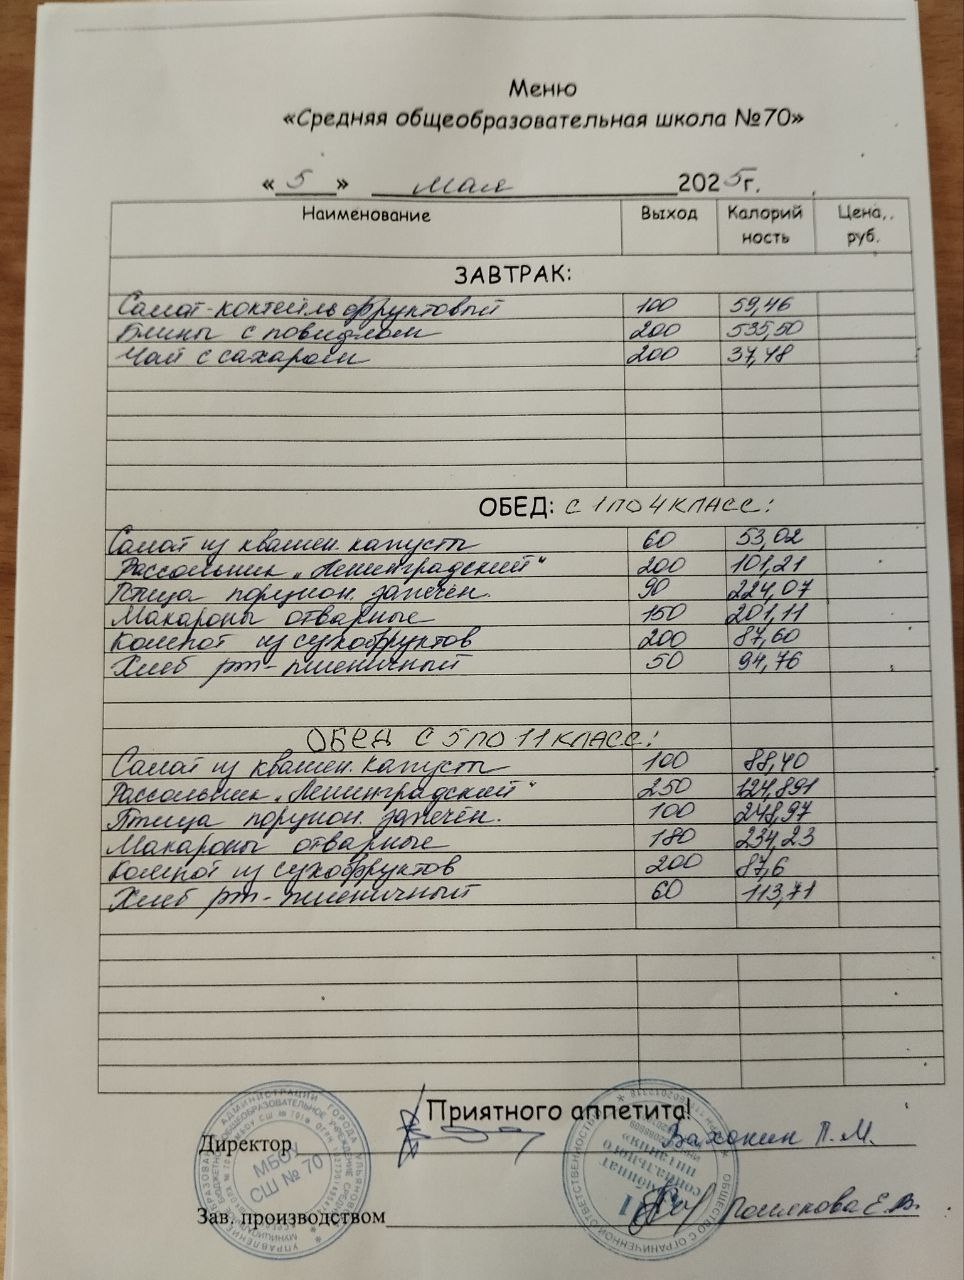 Меню
«Средняя общеобразовательная школа №70»
« 5 » мая 2025г.
Наименование Выход Калорий ность Цена, руб.
ЗАВТРАК:
Салат-коктейль фруктовый 100 59,46
Блины с повидлом 200 535,50
Чай с сахаром 200 37,48
ОБЕД: С 1 ПО 4 КЛАСС:
Салат из квашен. капусты 60 53,02
Рассольник „Ленинградский" 200 101,21
Птица порцион. запечён. 90 224,07
Макароны отварные 150 201,11
Компот из сухофруктов 200 87,60
Хлеб рж-пшеничный 50 94,76
ОБЕД С 5 ПО 11 КЛАСС:
Салат из квашен. капусты 100 88,40
Рассольник „Ленинградский" 250 124,891
Птица порцион. запечён. 100 248,97
Макароны отварные 180 234,23
Компот из сухофруктов 200 87,6
Хлеб рж-пшеничный 60 113,71
Приятного аппетита!
Директор П.М.
МБОУ
СШ № 70
Зав. производством Е.В.
социального
питания»
ОБЩЕСТВО С ОГРАНИЧЕННОЙ ОТВЕТСТВЕННОСТЬЮ